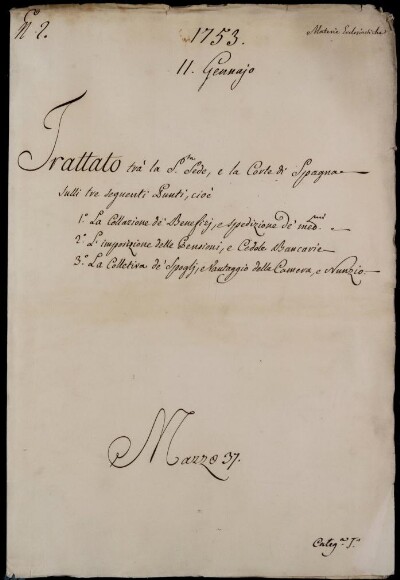 N.º 2.
1753.
Materie Ecclesiastiche
11. Gennajo
Trattato trà la S.ta Sede, e la Corte di Spagna
sulli tre seguenti Punti, cioè
1.º La Collazione de' Benefizj, e spedizione de' med.mi
2.º L'imposizione delle Pensioni, e Cedole Bancarie
3.º La Collettiva de' Spoglj, e Vantaggio della Camera, e Nunzio
Mazzo 37.
Categ.a I.a